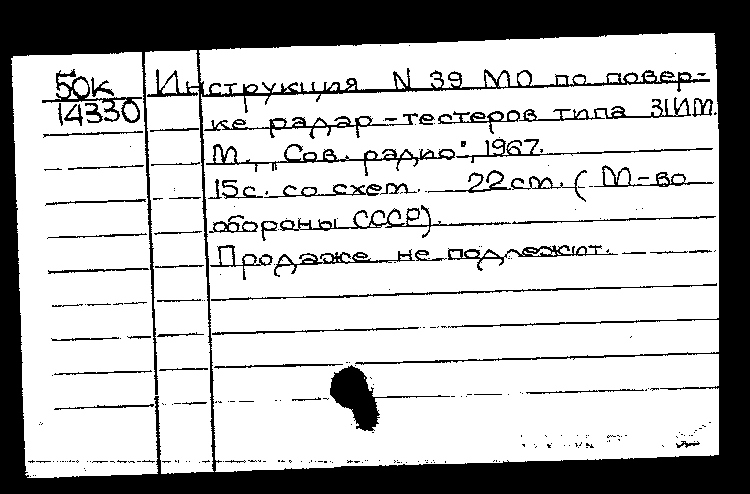 50к Инструкция N 39 МО по повер-
14330 ке радар-тестеров типа 31ИМ.
М., „Сов. радио", 1967.
15с. со схем. 22см. (М-во
обороны СССР).
Продаже не подлежит.